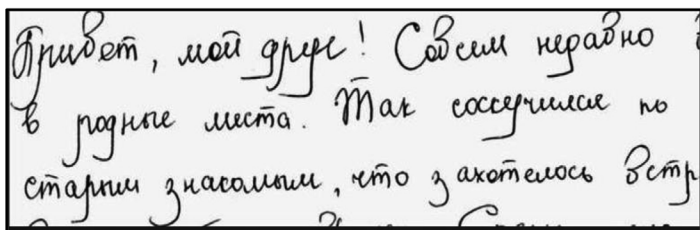 Привет, мой друг! Совсем недавно
в родные места. Так соскучился по
старым знакомым, что захотелось встр